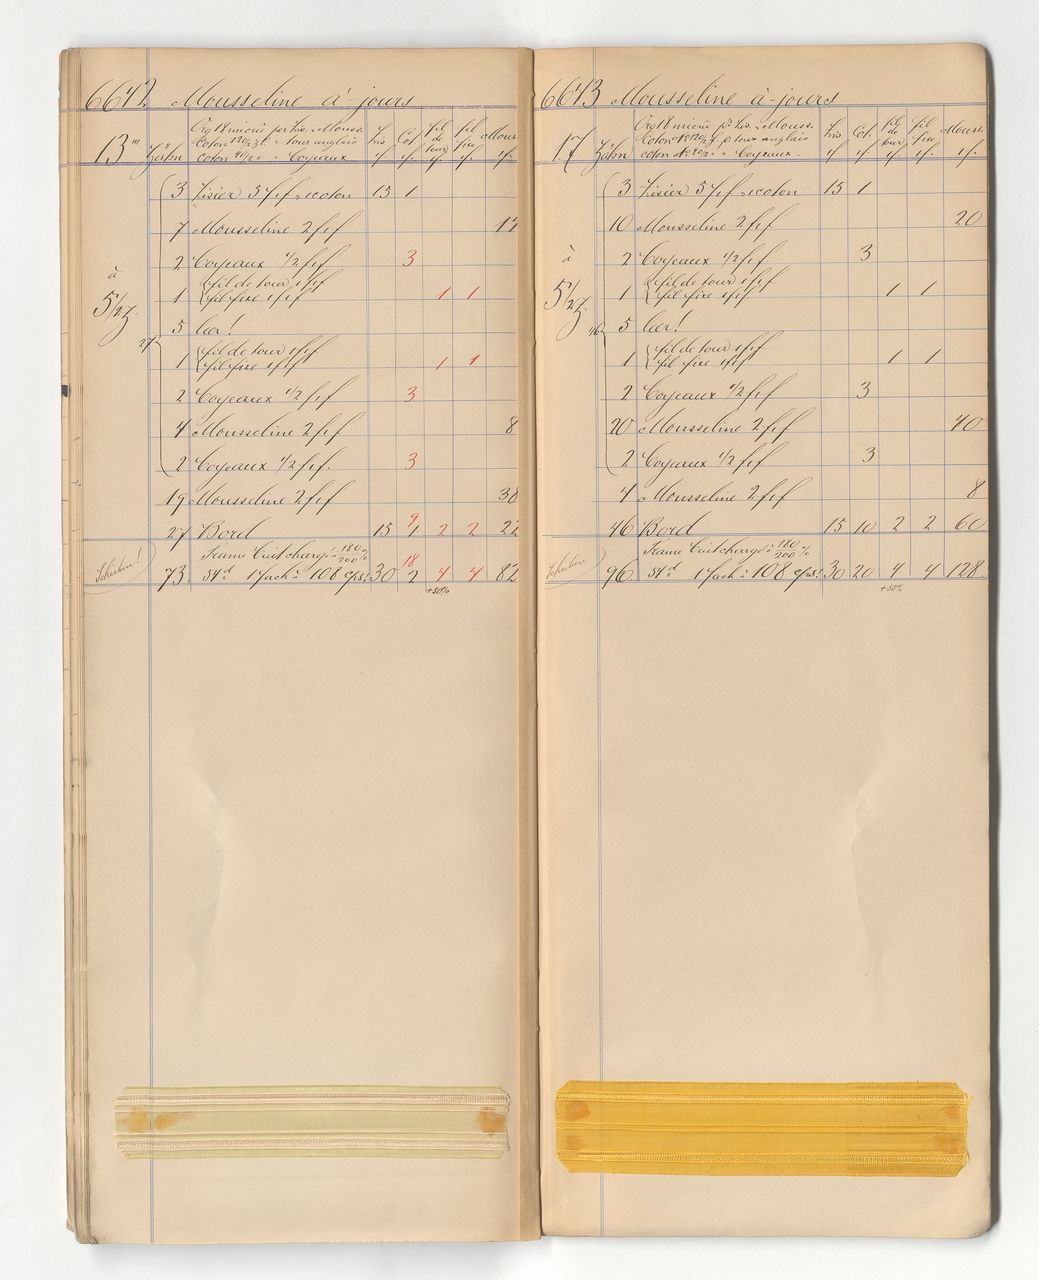 6642 Mousseline à jours
13''' Zähn
Org 18 mioui per lis. u. Mouss.
Coton 120/2 f. " tour anglais
Coton 40/2 " " Coyeaux
Lis Cot fil de tour fil fixe Mous
f. f. f. f. f.
à 5 1/2 Z.
3 Lisier 5 f. f. u. coton 15 1
7 Mousseline 2 f. f. 14
2 Coyeaux 1/2 f. f. 3
1 fil de tour 1 f. f.
fil fixe 1 f. f. 1 1
5 leer!
27
1 fil de tour 1 f. f.
fil fixe 1 f. f. 1 1
2 Coyeaux 1/2 f. f. 3
4 Mousseline 2 f. f. 8
2 Coyeaux 1/2 f. f. 3
19 Mousseline 2 f. f. 38
27 Bord 15 9 1 2 2 22
Trame Cuit chargé à 180/200 %
73 St d. 1 fach à 108 cps! 30 18 2 4 4 82
+50%
6643 Mousseline à-jours
17 Zähn
Org 18 mioui pr. lis. u. Mouss.
Coton No 120/2 f. p. tour anglais
Coton No 40/2 " " Coyeaux.
Lis Cot. fil de tour fil fixe Mouss.
f. f. f. f. f.
à 5 1/2 Z.
3 Lisier 5 f. f. u. coton 15 1
10 Mousseline 2 f. f. 20
2 Coyeaux 1/2 f. f. 3
1 fil de tour 1 f. f.
fil fixe 1 f. f. 1 1
46
5 leer!
1 fil de tour 1 f. f.
fil fixe 1 f. f. 1 1
2 Coyeaux 1/2 f. f. 3
20 Mousseline 2 f. f. 40
2 Coyeaux 1/2 f. f. 3
4 Mousseline 2 f. f. 8
46 Bord 15 10 2 2 60
Trame Cuit chargé à 180/200 %
96 St d. 1 fach à 108 cps! 30 20 4 4 128.
+50%